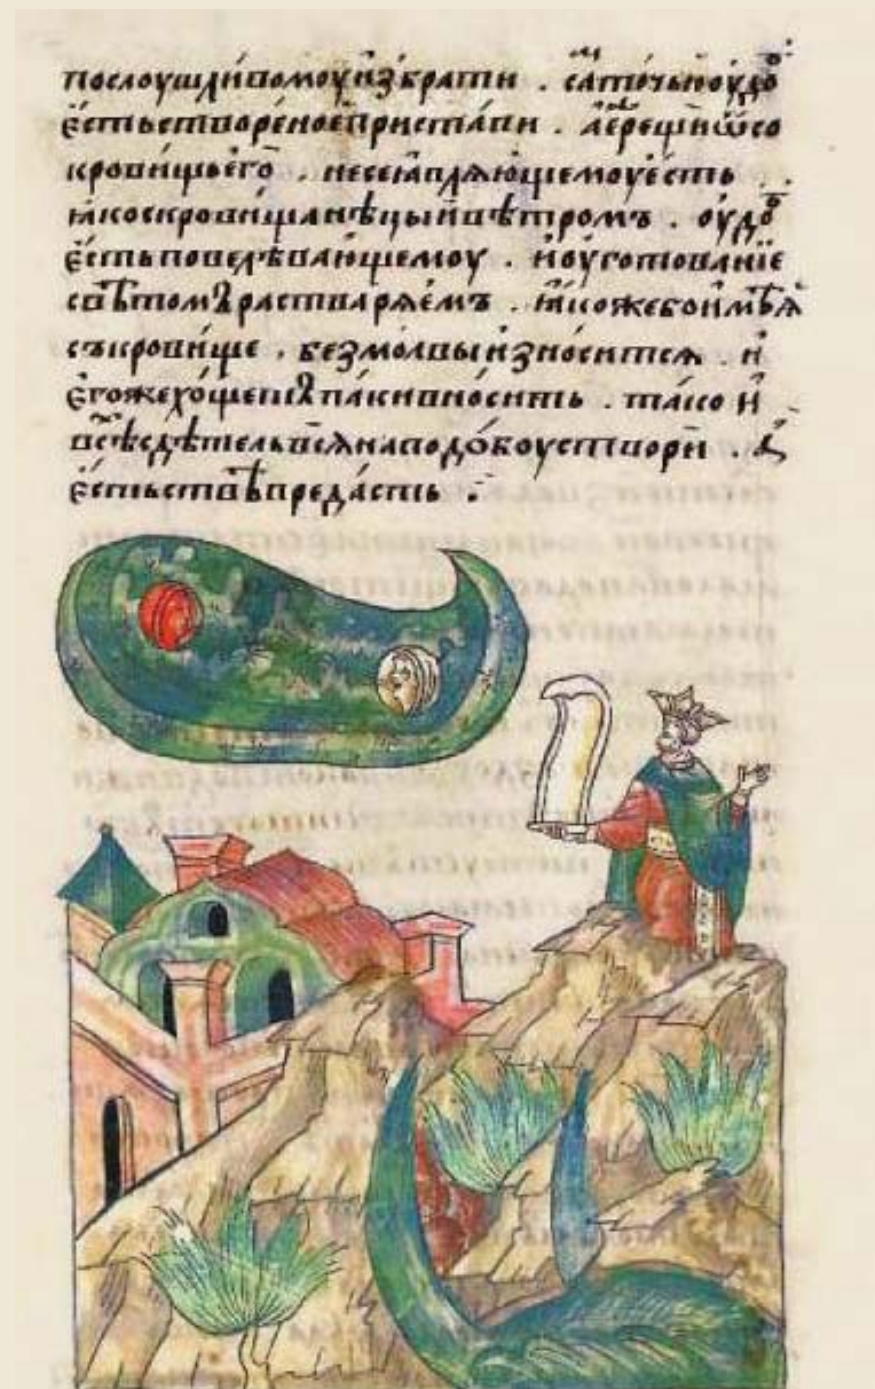 послоушливомоуизбрати . сѧточьноуⷣо
єстьстворе́ноепристати . аєрешиѿсо
кровищьего̀ . несеѧвлѧющемоуесть
ꙗкоскровищанѣцыивѣтромъ . оудоⷠ
єстьповелѣвающемоу . иоуготованїе
свѣтомърастварѧемъ . ꙗкожебоимѣꙗ
съкровище . безмолвыизноситсѧ . и
єгожехощешипакивносить . тако и
всѣсдѣтельвсѧнаподобоустворь . и
єстьствѣпредасть .